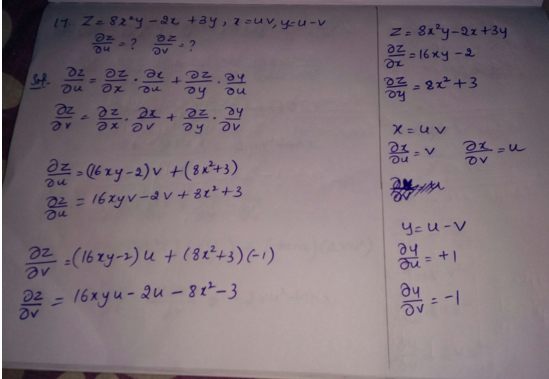 17. Z = 8x²y - 2x + 3y, x = uv, y = u - v
∂z/∂u = ? ∂z/∂v = ?
Sol. ∂z/∂u = ∂z/∂x · ∂x/∂u + ∂z/∂y · ∂y/∂u
∂z/∂v = ∂z/∂x · ∂x/∂v + ∂z/∂y · ∂y/∂v
∂z/∂u = (16xy - 2)v + (8x² + 3)
∂z/∂u = 16xyv - 2v + 8x² + 3
∂z/∂v = (16xy - 2)u + (8x² + 3)(-1)
∂z/∂v = 16xyu - 2u - 8x² - 3
Z = 8x²y - 2x + 3y
∂z/∂x = 16xy - 2
∂z/∂y = 8x² + 3
x = uv
∂x/∂u = v ∂x/∂v = u
y = u - v
∂y/∂u = +1
∂y/∂v = -1